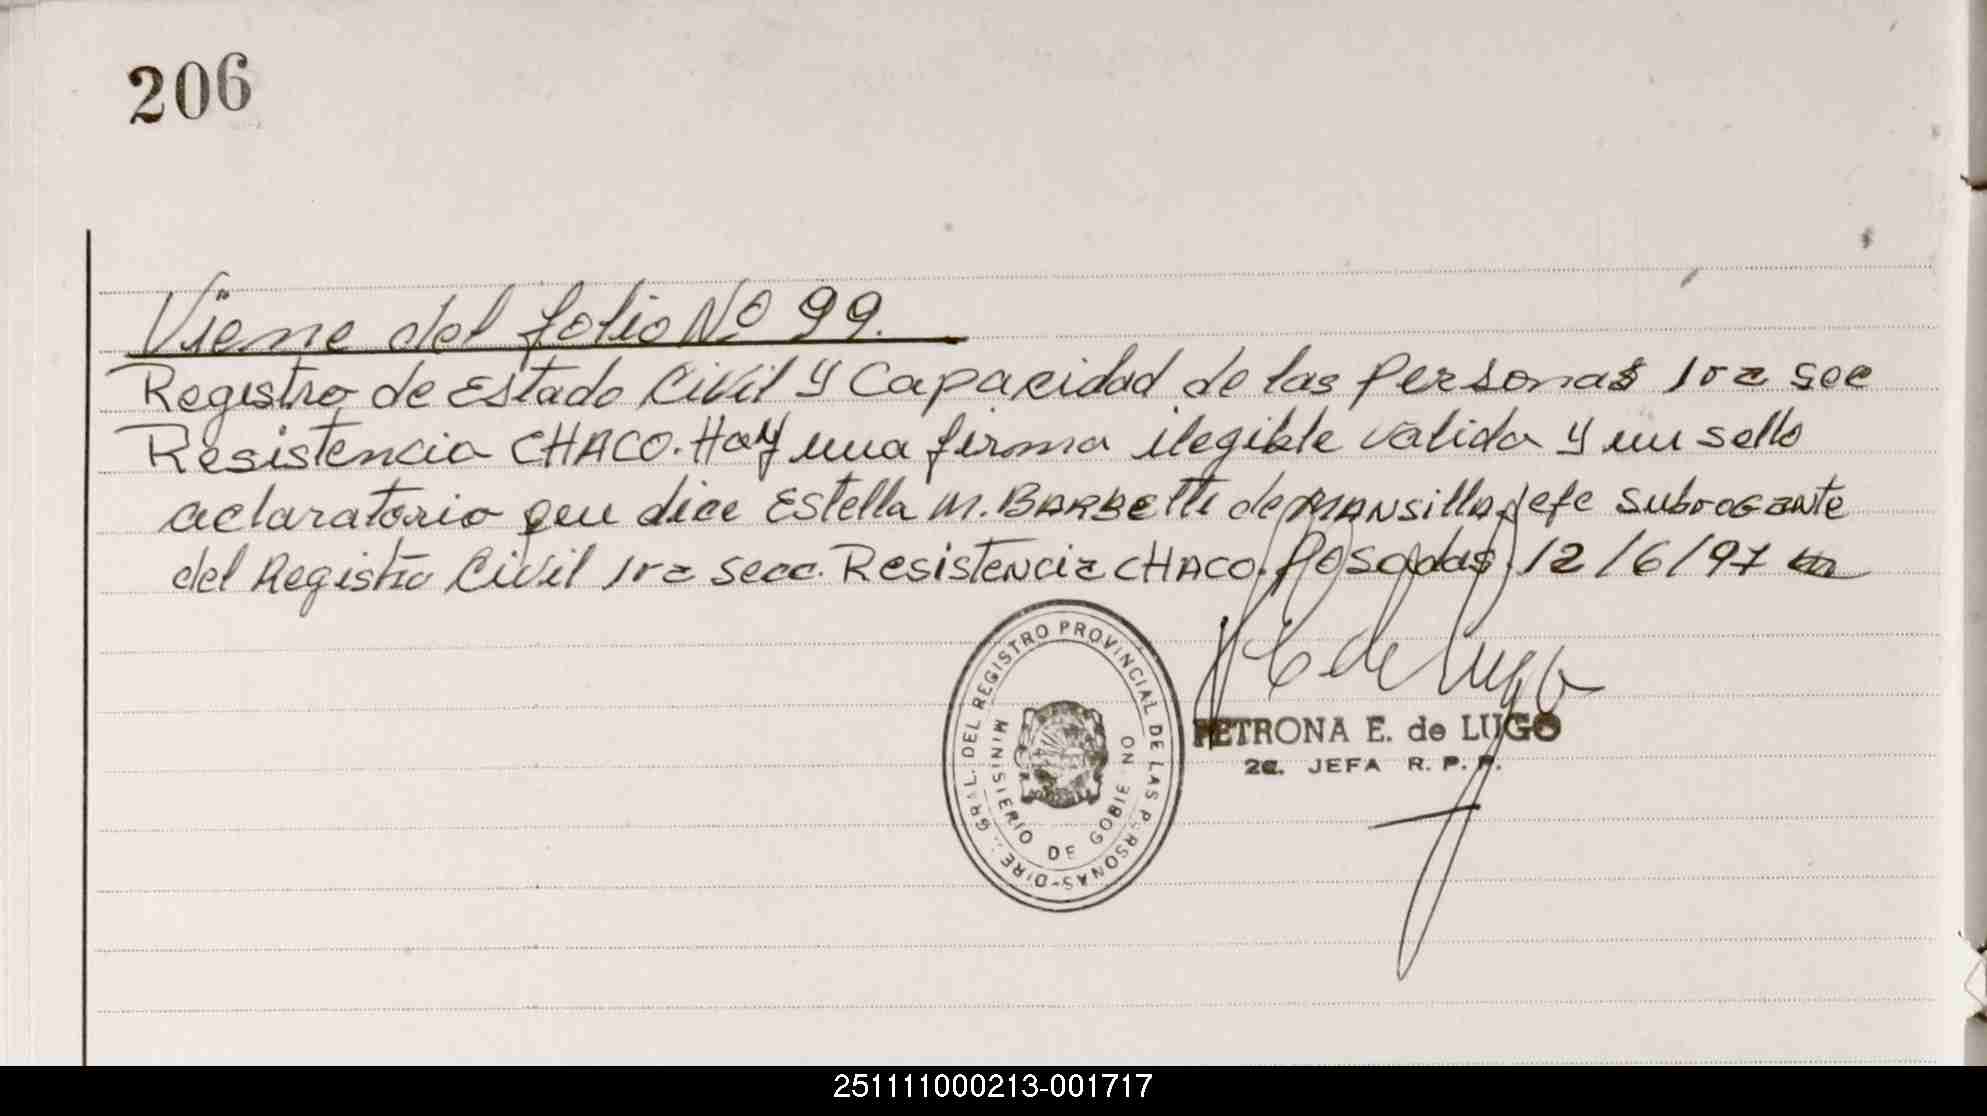 206
Viene del folio Nº 99.
Registro de Estado Civil y Capacidad de las Personas 1ra sec
Resistencia CHACO. Hay una firma ilegible valida y un sello
aclaratorio que dice Estella M. BARBEtti de MANSillA Jefe SubrOGante
del Registro Civil 1ra secc. Resistencia CHACO. Posadas 12/6/97
DIREC. GRAL. DEL REGISTRO PROVINCIAL DE LAS PERSONAS-
MINISTERIO DE GOBIERNO
P E de Lugo
PETRONA E. de LUGO
2a. JEFA R. P. P.
251111000213-001717